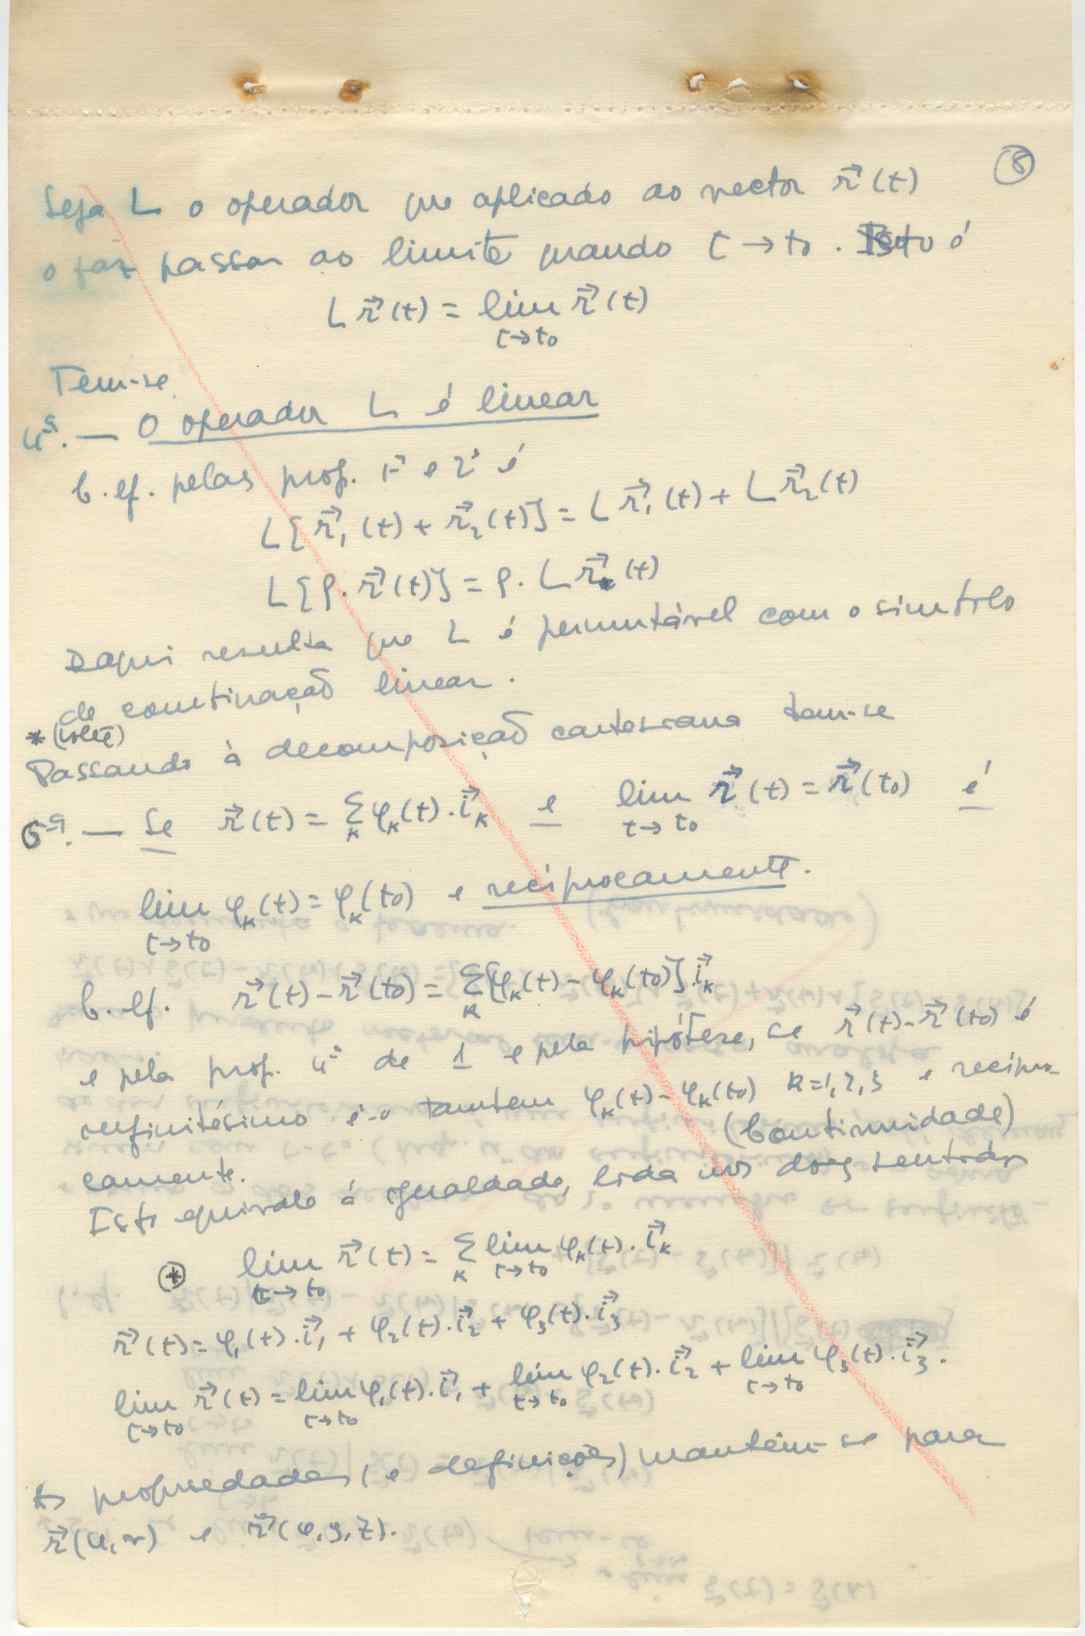 (8)
Seja L o operador que aplicado ao vector r⃗(t)
o faz passar ao limite quando t→t₀. Isto é
L r⃗(t) = lim r⃗(t)
t→t₀
Tem-se
4ª. — O operador L é linear
C. ef. pelas prop. 1ª e 2ª é
L[r⃗₁(t) + r⃗₂(t)] = L r⃗₁(t) + L r⃗₂(t)
L[ρ. r⃗(t)] = ρ. L r⃗(t)
Daqui resulta que L é permutável com o simbolo
de combinação linear.
* (volte)
Passando à decomposição cartesiana tem-se
5ª. — Se r⃗(t) = Σ φₖ(t). i⃗ₖ e lim r⃗(t) = r⃗(t₀) é
k t→t₀
lim φₖ(t) = φₖ(t₀) e reciprocamente.
t→t₀
C. ef. r⃗(t) – r⃗(t₀) = Σ[φₖ(t) – φₖ(t₀)] i⃗ₖ
k
e pela prop. 4ª de 1 e pela hipótese, se r⃗(t) – r⃗(t₀) é
infinitésimo é-o tambem φₖ(t) – φₖ(t₀) k=1,2,3 e recipro-
camente. (Continuidade)
Isto equivale á igualdade, lida nos dois sentidos
(*) lim r⃗(t) = Σ lim φₖ(t). i⃗ₖ
t→t₀ k t→t₀
r⃗(t) = φ₁(t). i⃗₁ + φ₂(t). i⃗₂ + φ₃(t). i⃗₃
lim r⃗(t) = lim φ₁(t). i⃗₁ + lim φ₂(t). i⃗₂ + lim φ₃(t). i⃗₃.
t→t₀ t→t₀ t→t₀ t→t₀
As propriedades (e definições) mantêm-se para
r⃗(u,v) e r⃗(x,y,z).